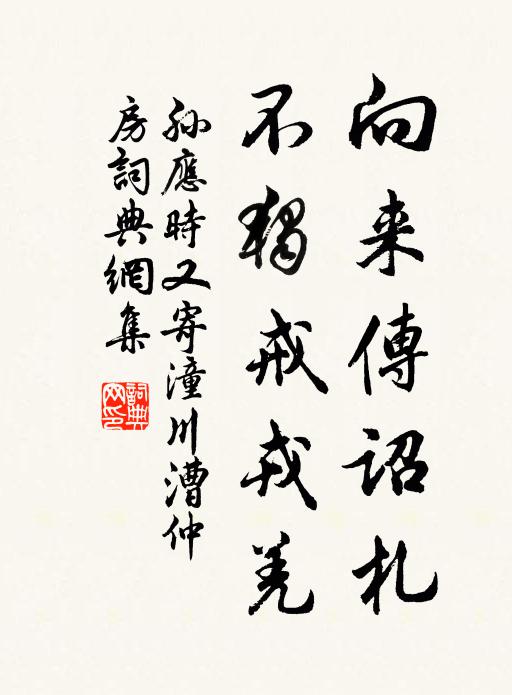 向来傳詔札
不獨戒戎羌
孙應時又寄潼川漕仲
房詞典網集
詞典网印